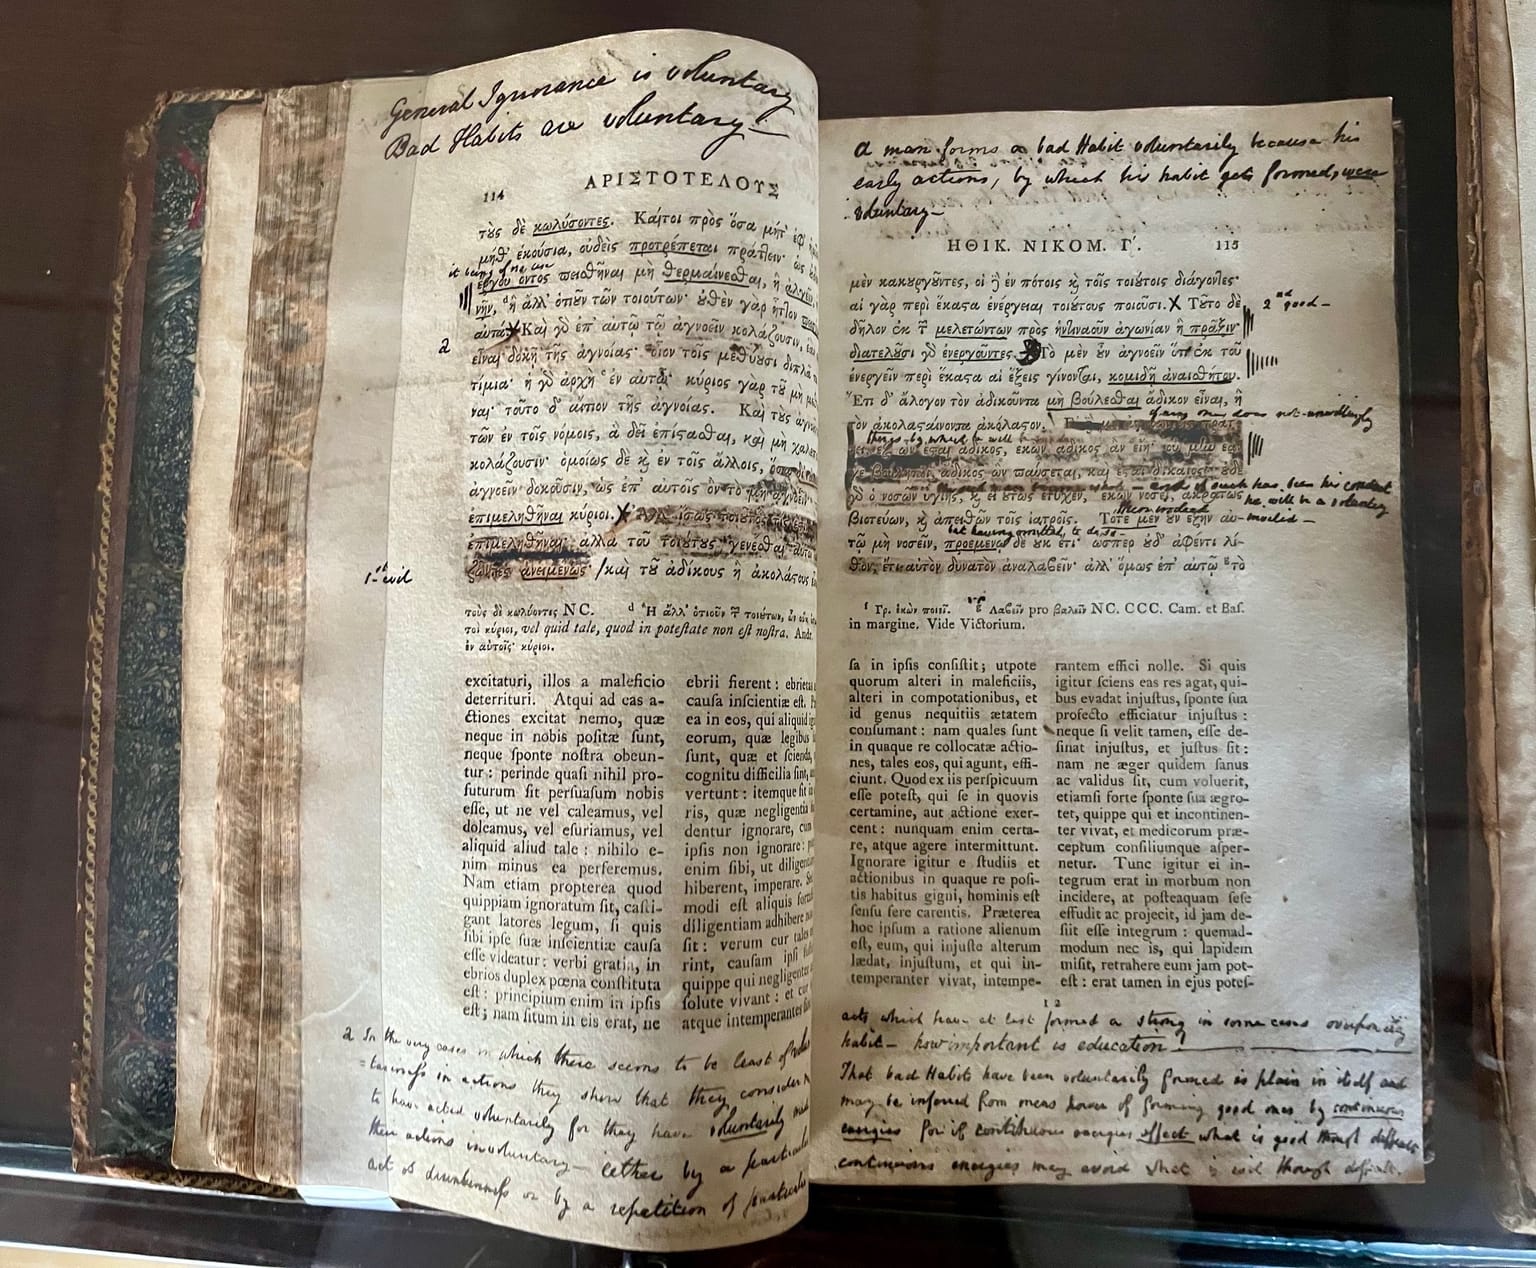 General Ignorance is voluntary
Bad Habits are voluntary—
114 ΑΡΙΣΤΟΤΕΛΟΥΣ
τὺς δὲ κωλύσοντες. Καίτοι πρὸς ὅσα μήτ' ἐφ'
μήθ' ἑκούσια, οὐδεὶς προτρέπεται πράτλειν· ὡς
it being of no use
ἔργου ὄντος πεισθῆναι μὴ θερμαίνεσθαι, ἢ ἀλγεῖν,
νῆν, ἢ ἄλλ' ὁτιῦν τῶν τοιούτων· ὐθὲν γὰρ ἧτλον
αὐτά. X Καὶ γὸ ἐπ' αὐτῷ τῷ ἀγνοεῖν κολάζουσιν,
2
εἶναι δοκῇ τῆς ἀγνοίας· οἷον τοῖς μεθύουσι διπλᾶ
τίμια· ἡ γὸ ἀρχὴ ἐν αὐτῷ· κύριος γὰρ τῦ μὴ
ναι· τοῦτο δ' αἴτιον τῆς ἀγνοίας. Καὶ τὺς
τῶν ἐν τοῖς νόμοις, ἃ δεῖ ἐπίστασθαι, καὶ μὴ
κολάζουσιν· ὁμοίως δὲ κ̀ ἐν τοῖς ἄλλοις, ὅσα
ἀγνοεῖν δοκοῦσιν, ὡς ἐπ' αὐτοῖς ὂν τὸ μὴ ἀγνοεῖν·
ἐπιμεληθῆναι κύριοι. X Ἀλλ' ἴσως τοιοῦτος
ἐπιμεληθῆναι· ἀλλὰ τοῦ τοιύτυς γενέσθαι αὐτοὶ
1st evil
ζῶντες ἀνειμένως· / καὶ τῦ ἀδίκους ἢ ἀκολάστους
τοὺς δὲ κωλύοντες NC. d Ἢ ἄλλ' ὁτιοῦν τ̃ τοιούτων,
τοὶ κύριοι, vel quid tale, quod in potestate non est nostra.
ἐν αὐτοῖς κύριοι.
excitaturi, illos a maleficio
deterrituri. Atqui ad eas a-
ctiones excitat nemo, quæ
neque in nobis positæ sunt,
neque sponte nostra obeun-
tur: perinde quasi nihil pro-
futurum sit persuasum nobis
esse, ut ne vel caleamus, vel
doleamus, vel esuriamus, vel
aliquid aliud tale: nihilo e-
nim minus ea perferemus.
Nam etiam propterea quod
quippiam ignoratum sit, casti-
gant latores legum, si quis
sibi ipse suæ inscientiæ causa
esse videatur: verbi gratia, in
ebrios duplex pœna constituta
est: principium enim in ipsis
est; nam situm in eis erat, ne
ebrii fierent: ebrietas
causa inscientiæ est.
ea in eos, qui aliquid
eorum, quæ legibus
sunt, quæ et sciendo,
cognitu difficilia sint,
vertunt: itemque sit in
ris, quæ negligentia
dentur ignorare, cum
ipsis non ignorare:
enim sibi, ut diligen
hiberent, imperare.
modi est aliquis
diligentiam adhibere
sit: verum cur tales
rint, causam ipsi
quippe qui negligenter
solute vivant: et cur
atque intemperantes
2 In the very cases in which there seems to be least of
=tariness in actions they shew that they consider
to have acted voluntarily for they have voluntarily made
their actions involuntary— either by a particular
act of drunkenness or by a repetition of particular
a man forms a bad Habit voluntarily because his
early actions, by which his habit gets formed, were
voluntary—
ΗΘΙΚ. ΝΙΚΟΜ. Γ΄. 115
μὲν κακυργῦντες, οἱ ἢ ἐν πότοις κ̀ τοῖς τοιύτοις διάγοντες·
αἱ γὰρ περὶ ἕκαστα ἐνέργειαι τοιύτους ποιοῦσι. X Τῦτο δὲ
2nd good—
δῆλον ἐκ τ̃ μελετώντων πρὸς ἡντιναοῦν ἀγωνίαν ἢ πρᾶξιν·
διατελῦσι γὸ ἐνεργοῦντες. Τὸ μὲν ὖν ἀγνοεῖν ὅτι ἐκ τοῦ
ἐνεργεῖν περὶ ἕκαστα αἱ ἕξεις γίνονται, κομιδῇ ἀναισθήτου.
Ἔτι δ' ἄλογον τὸν ἀδικοῦντα μὴ βούλεσθαι ἄδικον εἶναι, ἢ
if any one does not unwillingly
τὸν ἀκολασταίνοντα ἀκόλαστον.
things by which he will be
ἐξ ὧν ἔσται ἄδικος, ἑκὼν ἄδικος ἂν εἴη· οὐ μὴν ἐάν
γε βούληται, ἄδικος ὢν παύσεται, καὶ ἔσται δίκαιος· ὐδὲ
and if such has been his conduct
γὸ ὁ νοσῶν ὑγιής, κ̀ εἰ ὕτως ἔτυχεν, ἑκὼν νοσεῖ, ἀκρατῶς
he will be a voluntary
βιοτεύων, κ̀ ἀπειθῶν τοῖς ἰατροῖς. Τότε μὲν ὖν ἐξῆν αὐ-
invalid—
but having omitted to do so—
τῷ μὴ νοσεῖν, προεμένῳ δὲ ὐκ ἔτι· ὥσπερ ὐδ' ἀφέντι λί-
θον, ἔτι αὐτὸν δυνατὸν ἀναλαβεῖν· ἀλλ' ὅμως ἐπ' αὐτῷ g τὸ
f Γρ. ἑκὼν ποιεῖ. g Λαβεῖν pro βαλεῖν NC. CCC. Cam. et Bas.
in margine. Vide Victorium.
sa in ipsis consistit; utpote
quorum alteri in maleficiis,
alteri in compotationibus, et
id genus nequitiis ætatem
consumant: nam quales sunt
in quaque re collocatæ actio-
nes, tales eos, qui agunt, effi-
ciunt. Quod ex iis perspicuum
esse potest, qui se in quovis
certamine, aut actione exer-
cent: nunquam enim certa-
re, atque agere intermittunt.
Ignorare igitur e studiis et
actionibus in quaque re posi-
tis habitus gigni, hominis est
sensu fere carentis. Præterea
hoc ipsum a ratione alienum
est, eum, qui injuste alterum
lædat, injustum, et qui in-
temperanter vivat, intempe-
rantem effici nolle. Si quis
igitur sciens eas res agat, qui-
bus evadat injustus, sponte sua
profecto efficiatur injustus:
neque si velit tamen, esse de-
sinat injustus, et justus sit:
nam ne æger quidem sanus
ac validus sit, cum voluerit,
etiamsi forte sponte sua ægro-
tet, quippe qui et incontinen-
ter vivat, et medicorum præ-
ceptum consiliumque asper-
netur. Tunc igitur ei in-
tegrum erat in morbum non
incidere, at posteaquam sese
effudit ac projecit, id jam de-
siit esse integrum: quemad-
modum nec is, qui lapidem
misit, retrahere eum jam pot-
est: erat tamen in ejus potes-
1 2
acts which have at last formed a strong in some cases overpowering
habit— how important is education!
That bad Habits have been voluntarily formed is plain in itself and
may be inferred from mens power of forming good ones by continuous
energies for if continuous energies effect what is good though difficult
continuous energies may avoid what is evil though difficult.